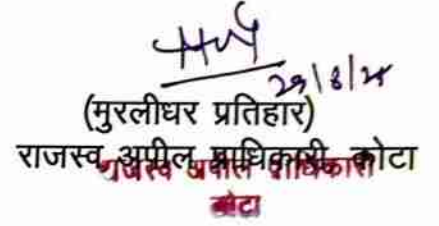 29/8/25
(मुरलीधर प्रतिहार)
राजस्व अपील प्राधिकारी, कोटा
राजस्व अपील प्राधिकारी
कोटा